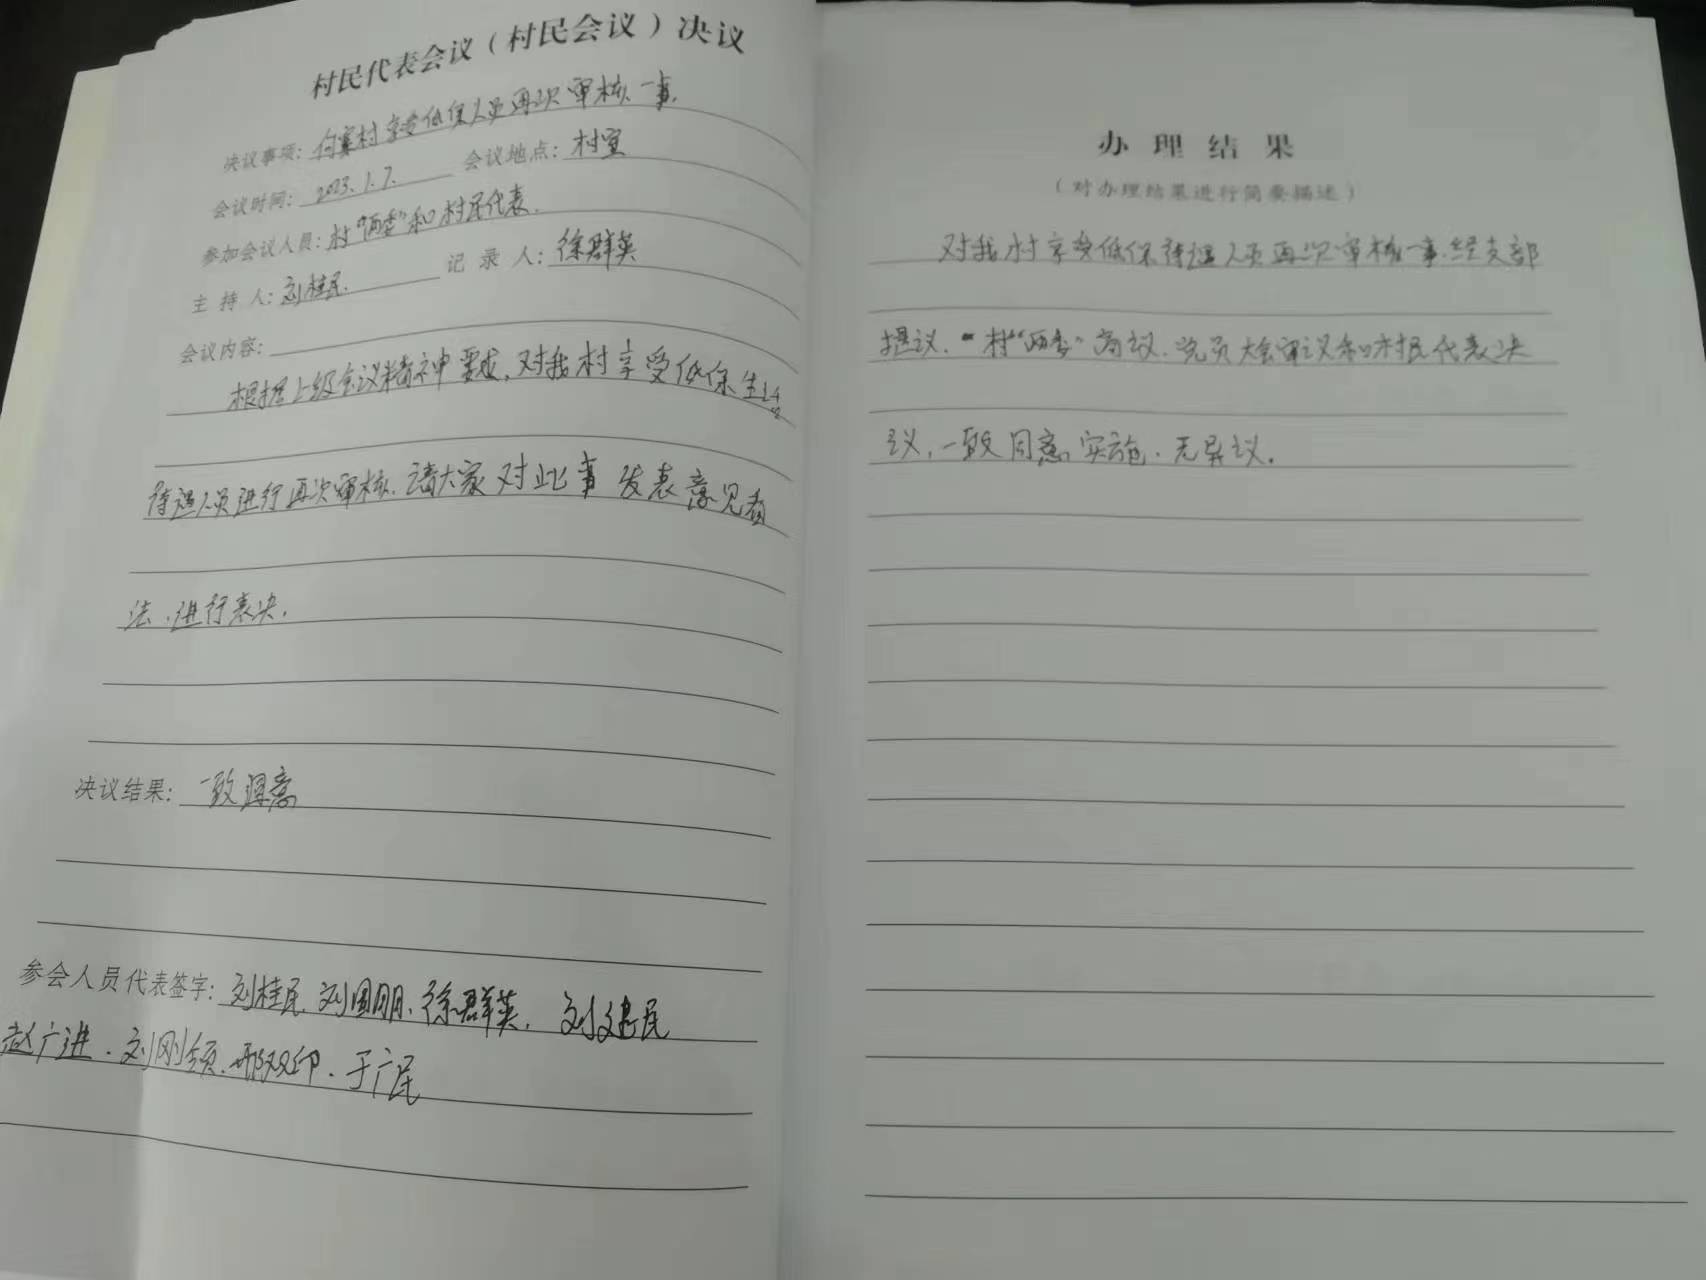 村民代表会议（村民会议）决议
决议事项：付寨村享受低保人员再次审核一事.
会议时间：2023.1.7. 会议地点：村室
参加会议人员：村“两委”和村民代表.
主持人：刘桂民. 记录人：徐群英
会议内容：
根据上级会议精神要求，对我村享受低保生活
待遇人员进行再次审核.请大家对此事发表意见看
法.进行表决.
决议结果：一致同意
参会人员代表签字：刘桂民.刘国朋.徐群英.刘建民
赵广进.刘刚领.邢双印.于广民
办理结果
（对办理结果进行简要描述）
对我村享受低保待遇人员再次审核一事.经支部
提议.村“两委”商议.党员大会审议和村民代表决
议，一致同意实施.无异议.